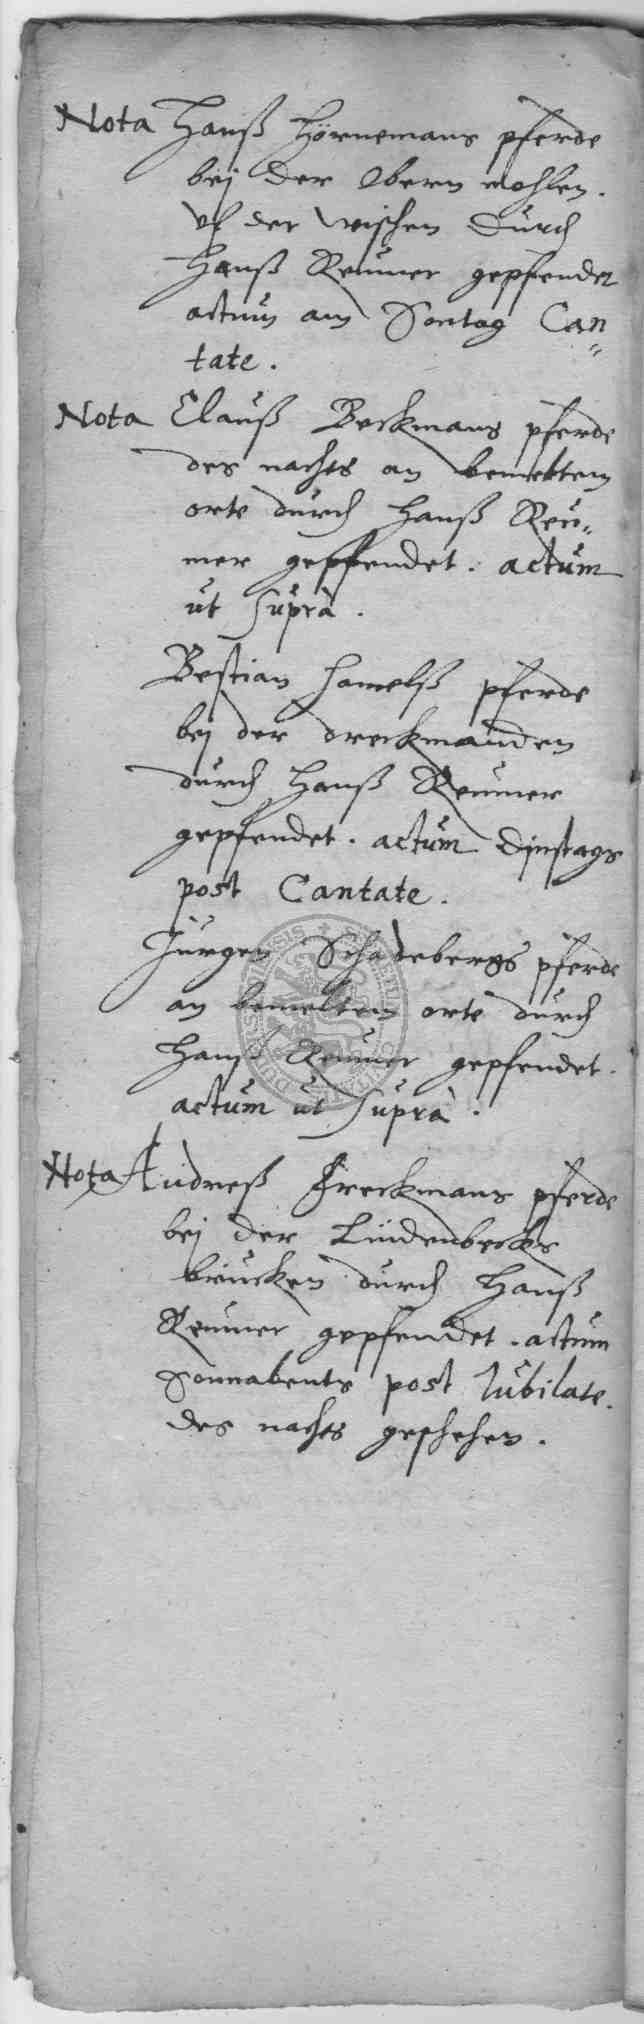 Nota Hanß Hörnemans pferde
bei der Obern mohlen.
uf der wischen durch
Hanß Reumer gepfendet
actum am Sontag Can„
tate.
Nota Clauß Beckmans pferde
des nachts an bemeltem
orte durch Hanß Reu„
mer gepfendet. actum
ut suprà.
Bestian Hamelß pferde
bei der
durch Hanß Reumer
gepfendet. actum Dinstags
post Cantate.
Jürgen Schadebergs pferde
an bemeltem orte durch
Hanß Reumer gepfendet.
actum ut suprà.
Nota Andreß Freckmans pferde
bei der Lindenbecks
brucken durch Hanß
Reumer gepfendet. actum
Sonnabents post Jubilate.
des nachts geschehen.